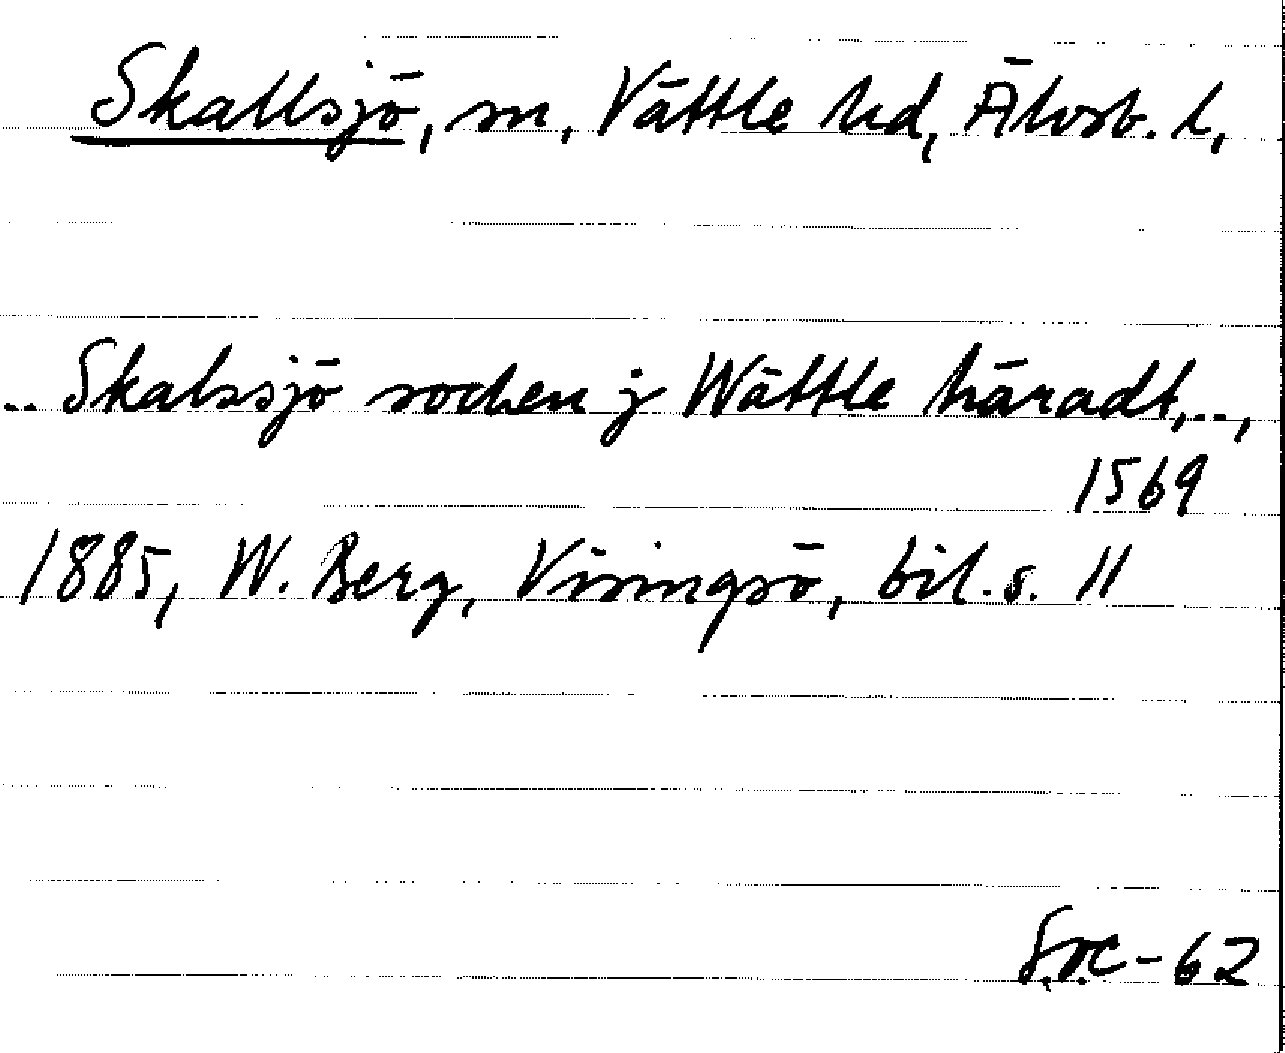 Skallsjö, sn, Vättle hd, Älvsb. l,
.. Skalssjö sochen j Wättle häradt,..,
1569
1885, W. Berg, Visingsö, bil. s. 11
-62